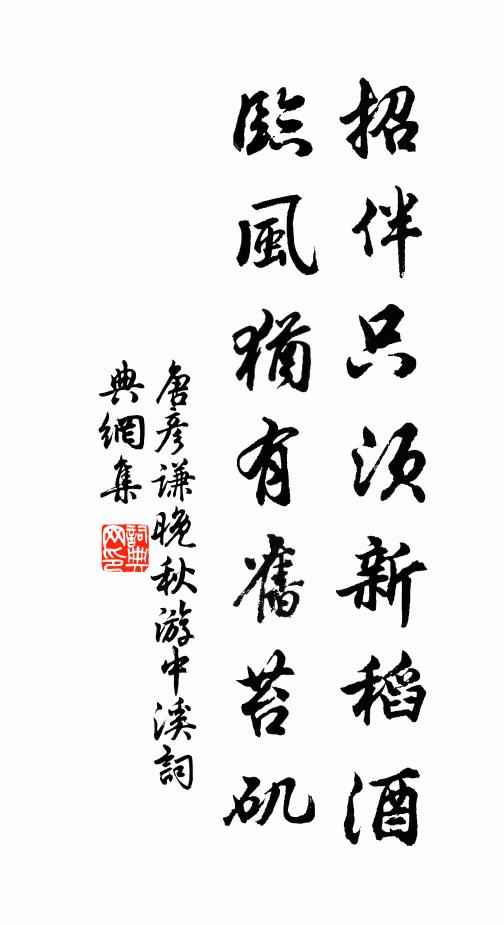 招伴只须新稻酒
臨風猶有舊苔矶
唐彦谦晚秋游中溪詞
典網集
詞典網印